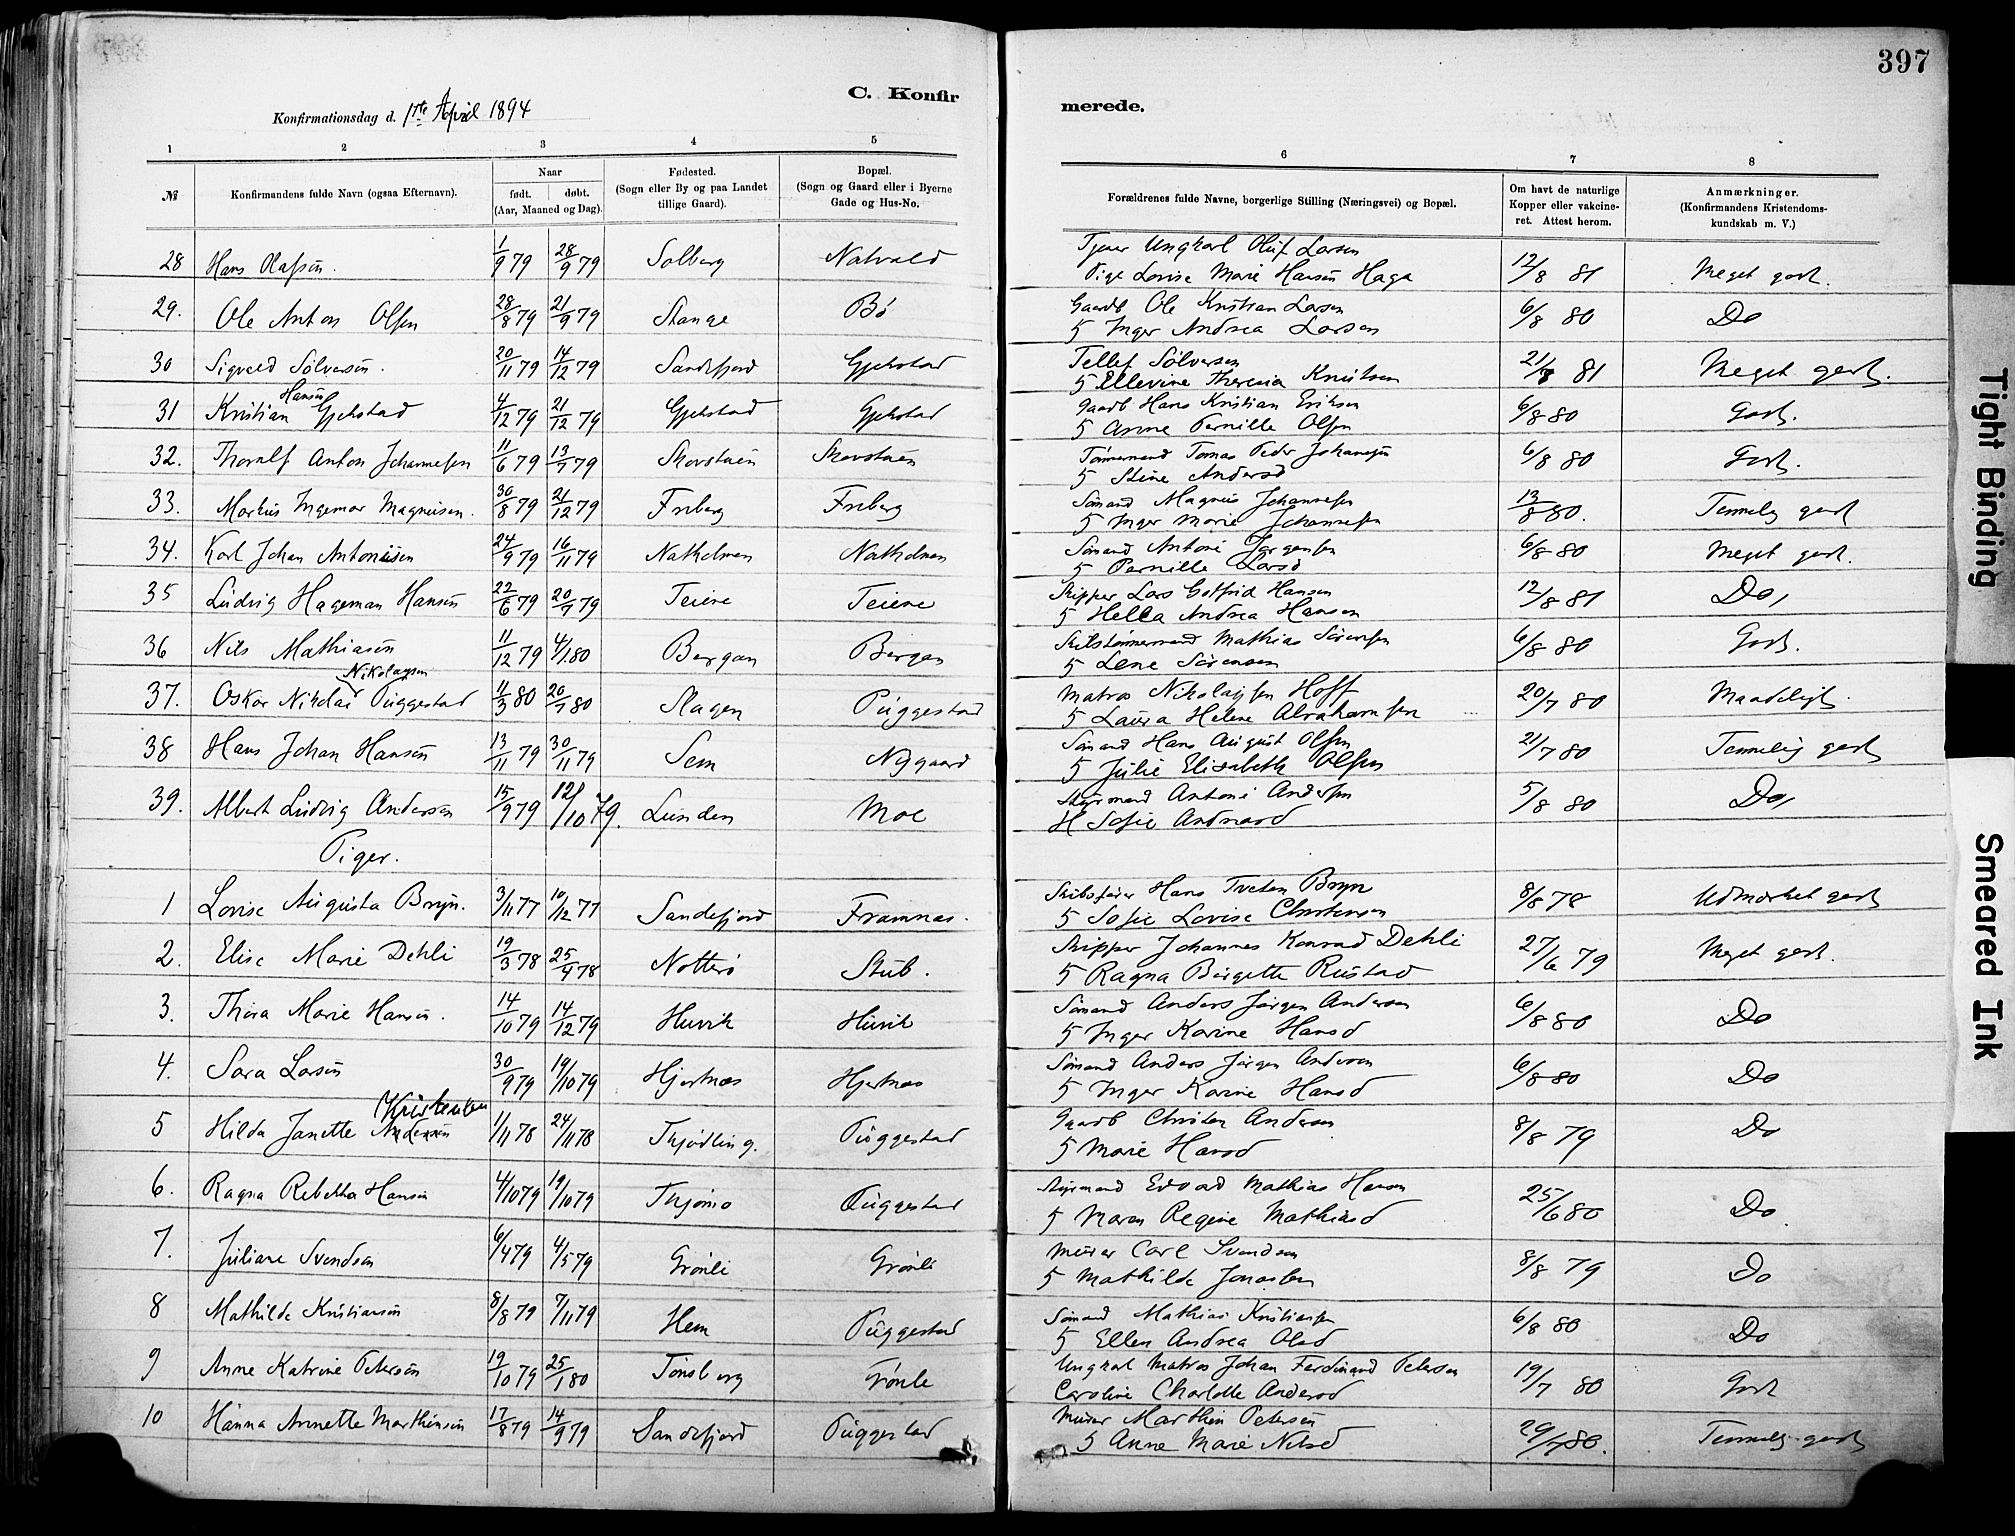 397
C. Konfir merede.
Konfirmationsdag d. 1ste April 1894
1 2 3 4 5 6 7 8
№ Konfirmandens fulde Navn (ogsaa Efternavn). Naar født. døbt. (Aar, Maaned og Dag). Fødested. (Sogn eller By og paa Landet tillige Gaard). Bopæl. (Sogn og Gaard eller i Byerne Gade og Hus-No. Forældrenes fulde Navne, borgerlige Stilling (Næringsvei) og Bopæl. Om havt de naturlige Kopper eller vakcineret. Attest herom. Anmærkninger. (Konfirmandens Kristendomskundskab m. V.)
28 Hans Olafsen. 1/9 79 28/9 79 Solberg Natvald Ungkarl Oluf Larsen
Pige Lovise Marie Hansen Haga 12/8 81 Meget godt.
29. Ole Anton Olsen 28/8 79 21/9 79 Stange Bø Gaardb Ole Kristian Larsen
5 Inger Andrea Larsen 6/8 80 Do
30 Sigvald Sølversen. 20/11 79 14/12 79 Sandefjord Gjekstad Tellef Sølversen
5 Ellevine Theresia Knutsen 21/8 81 Meget godt.
31 Kristian Hansen Gjekstad 4/12 79 21/12 79 Gjekstad Gjekstad Gaardb Hans Kristian Eriksen
5 Anne Pernille Olsen 6/8 80 Godt.
32. Thoralf Anton Johannesen 11/6 79 13/7 79 Skovstuen Skovstuen Tømmermand Tomas Peder Johansen
5 Stine Andersd 6/8 80 Godt.
33. Markus Ingemar Magnusen. 30/8 79 21/12 79 Freberg Freberg Sømand Magnus Johannesen
5 Inger Marie Johannesen 13/8 80. Temmelig godt
34. Karl Johan Antonisen 24/9 79 16/11 79 Natholmen Natholmen Sømand Antoni Jørgensen
5 Pernille Larsd 6/8 80 Meget godt.
35 Ludvig Hageman Hansen 22/6 79 20/7 79 Teiene Teiene Skipper Lars Gotfrid Hansen
5 Hella Andrea Hansen 12/8 81 Do,
36 Nils Mathiasen 11/12 79 4/1 80 Bergan Bergan Skibstømmermand Mathias Sørensen
5 Lene Sørensen 6/8 80 Godt.
37. Oskar Nikolai Nikolaysen Puggestad 11/3 80 20/7 80 Slagen Puggestad Matros Nikolaysen Hoff
5 Laura Helene Abrahamsen 20/7 80 Maadeligt.
38 Hans Johan Hansen 13/11 79 30/11 79 Sem Nygaard Sømand Hans August Olsen
5 Julie Elisabeth Olsen 21/7 80 Temmelig godt
39. Albert Ludvig Andersen 15/9 79 12/10 79. Lunden Moe Styrmand Antoni Andersen
H Sofie 5/8 80 Do,
Piger.
1 Lovise Augusta Bryn. 3/11 77 10/12 77 Sandefjord Framnæs. Skibsfører Hans Tveten Bryn
5 Sofie Lovise Christensen 8/8 78 Udmærket godt
2. Elise Marie Dehli 19/3 78 25/4 78 Nøtterø Stub. Skipper Johannes Konrad Dehli
5 Ragna Birgette Rustad 27/6 79 Meget godt.
3. Thora Marie Hansen. 14/10 79 14/12 79 Huvik Huvik Sømand Anders Jørgen Andersen
5 Inger Karine Hansd 6/8 80 Do
4. Sara Larsen 30/9 79 19/10 79 Hjertnæs Hjertnæs Sømand Anders Jørgen Andersen
5 Inger Karine Hansd 6/8 80 Do
5 Hilda Janette Kristensen Andersen 1/11 78 24/11 78 Thjødling. Puggestad Gaardb Christen Andersen
5 Marie Hansd 8/8 79 Do
6. Ragna Rebekka Hansen 4/10 79 19/10 79 Thjømø Puggestad Styrmand Edvard Mathias Hansen
5 Maren Regine Mathiasd 25/6 80 Do
7. Juliane Svendsen 6/4 79 4/5 79 Grønli Grønli Murer Carl Svendsen
5 Mathilde Jonassen 8/8 79 Do
8 Mathilde Kristiansen 8/8 79 7/11 79 Hem Puggestad Sømand Mathias Kristiansen
5 Ellen Andrea Olsd 6/8 80 Do
9 Anne Katrine Petersen 19/10 79 25/1 80 Tønsberg Grønle Ungkarl Matros Johan Ferdinand Petersen
Caroline Charlotte Andersd 19/7 80 Godt
10 Hanna Annette Marthinsen 17/8 79 14/9 79 Sandefjord Puggestad Murer Marthin Petersen
5 Anne Marie Nilsd 29/7 80. Temmelig godt
Tight Binding
Smeared Ink